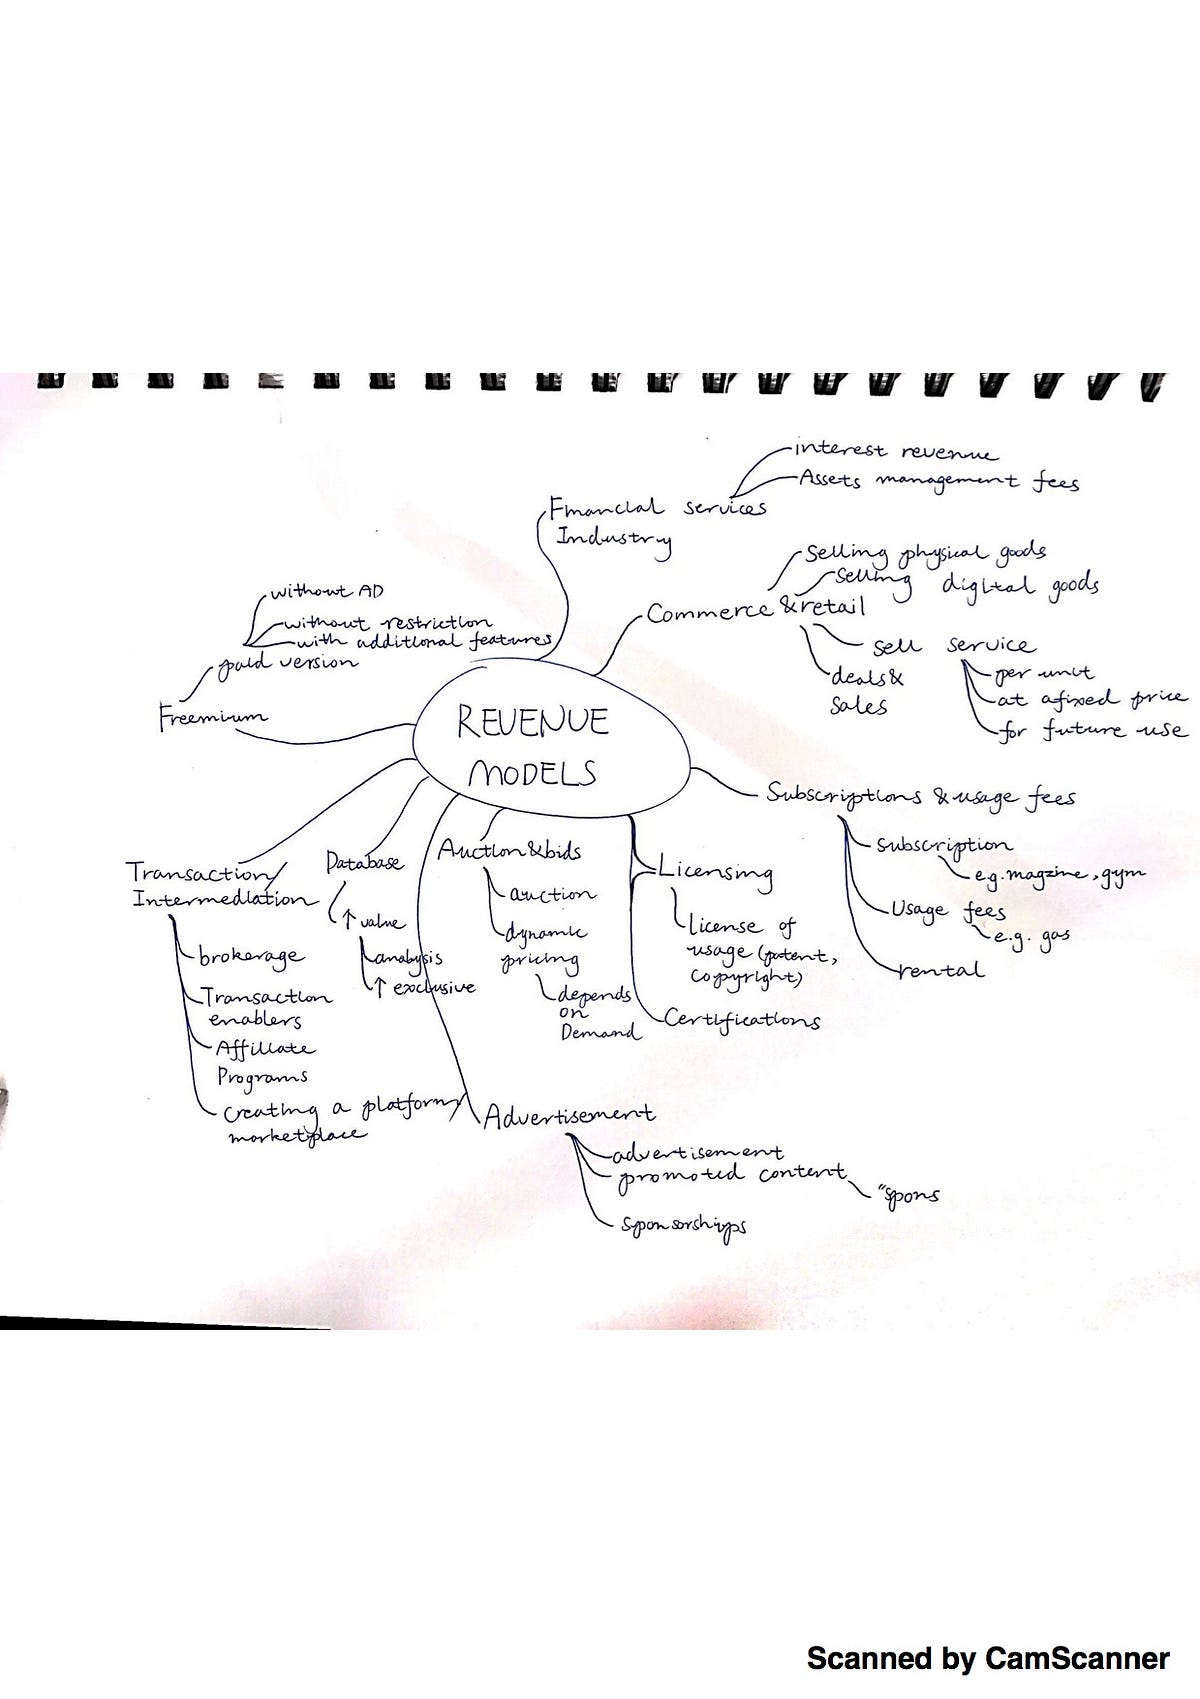 interest revenue
Assets management fees
Financial services
Industry
selling physical goods
selling digital goods
Commerce & retail
sell service
per unit
at a fixed price
for future use
deals &
sales
without AD
without restriction
with additional features
paid version
Freemium
REVENUE
MODELS
Subscriptions & usage fees
subscription
e.g. magzine, gym
Usage fees
e.g. gas
rental
Transaction/
Intermediation
brokerage
Transaction
enablers
Affiliate
Programs
creating a platform/
marketplace
Database
↑ value
analysis
↑ exclusive
Auction & bids
auction
dynamic
pricing
depends
on
Demand
Licensing
license of
usage (patent,
copyright)
Certifications
Advertisement
advertisement
promoted content
"spons
sponsorships
Scanned by CamScanner